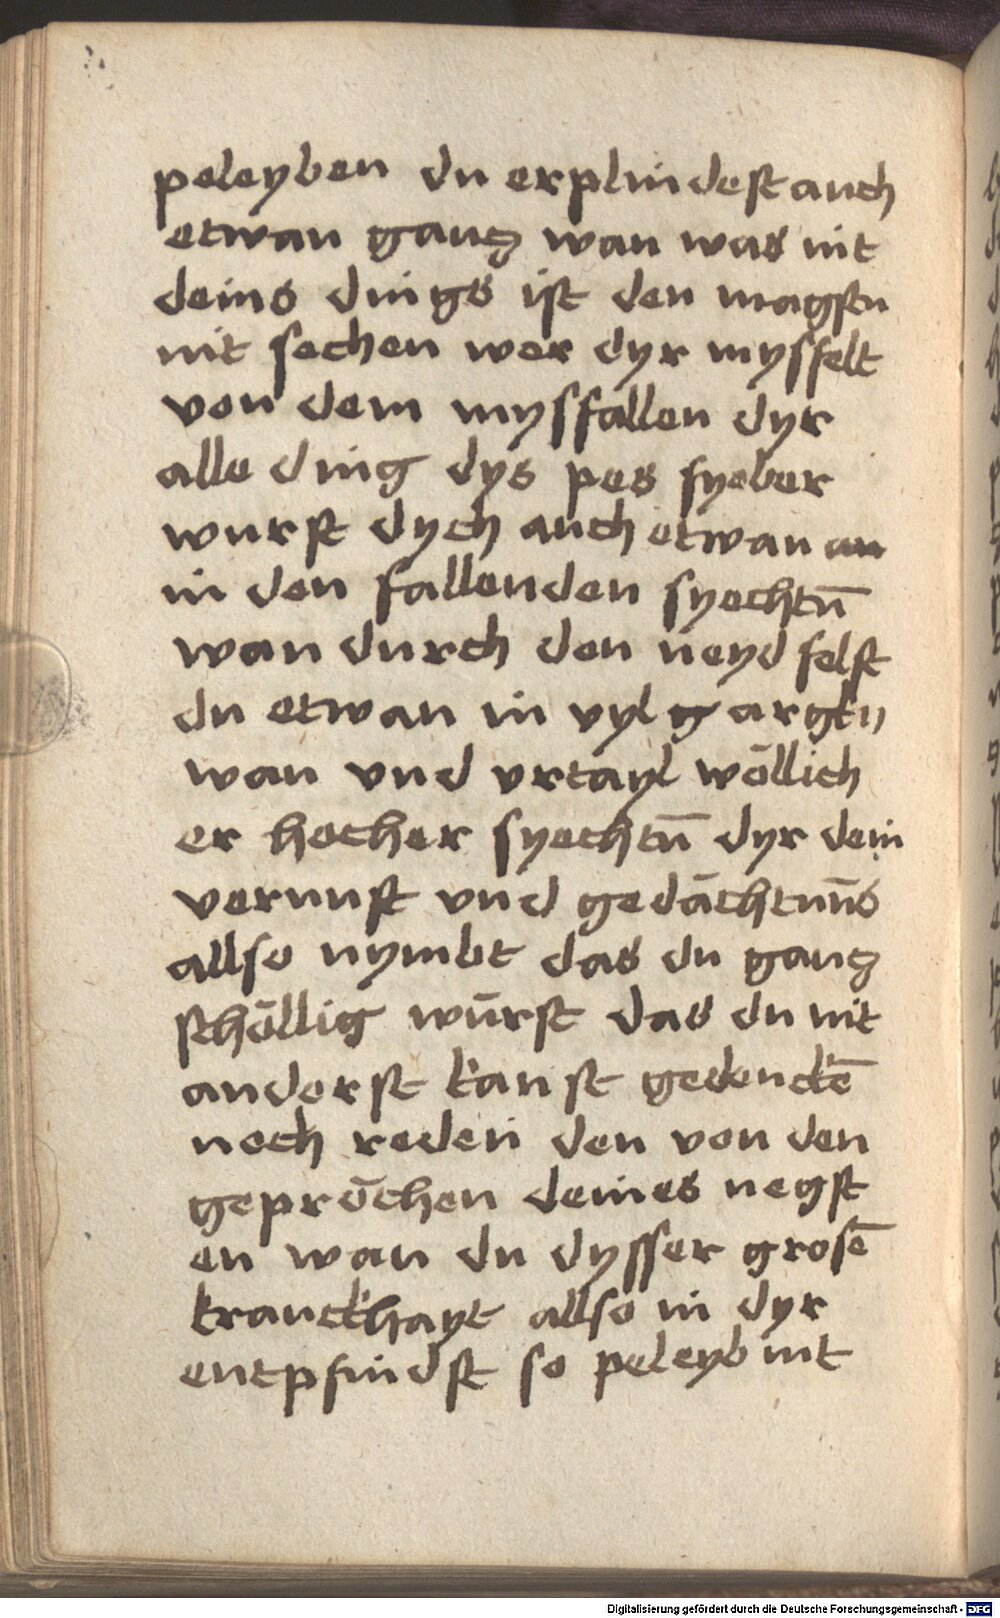 peleyben du erplindest auch
etwan gantz wan was nit
deins dings ist den magstu
nit sechen wer dyr mysfelt
von dem mysfallen dyr
alle ding dys pes fyeber
wurft dych auch etwan an
in den fallenden syechtū
wan durch den neyd felst
du etwan in vyl g argkn
wan vnd vrtayl wöllich
er hocher syechtū dyr dein
vernunft vnd gedächtnüs
allso nymbt das du gantz
schöllig würst das du nit
anderst kanst gedenckē
noch reden den von den
gepröchen deines negst
en wan du dysser grosē
kranckhayt allso in dyr
entpfindst so peleyb nit
Digitalisierung gefördert durch die Deutsche Forschungsgemeinschaft - DFG